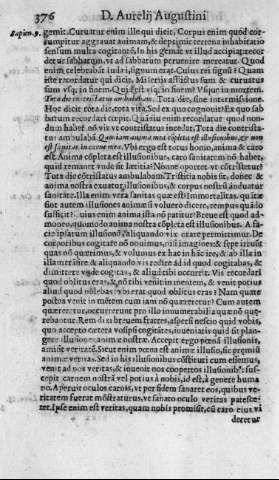 376 D. Aurelij Augustini
Sapien. 9. gemit. Curuatur enim ille qui dicit, Corpus enim quod cor-
rumpitur aggrauat animam, & deprimit terrena inhabitatio
sensum multa cogitantē. In
der sabbatum, vt ad sabbatum peruenire mereatur. Quod
enim celebrabāt Iudæi, signum erat. Cuius rei signū? Quam
iste recordatur qui dicit, Miserijs afflictus sum & curuatus
sum vsq; in finem. Quid est vsq; in finem? Vsque in mortem.
Tota die contristatus ambulabam. Tota die, sine intermissione.
Hoc dicit tota die, tota vita. Sed ex quo cognouit? Ex quo sab-
batum recordatus est. Dum enim recordatur quod non-
dum habet nō vis vt contristatus incedat? Tota die contrista-
tus ambulabā. Quoniam anima mea cōpleta est illusionibus, & non
est sanitas in carne mea. Vbi ergo est totus homo, anima & caro
est. Anima cōpleta est illusionibus, caro sanitatem nō habet,
quid remanet vnde sit lætitia? Nonne oportet vt cōtristetur?
Tota die cōtristatus ambulabam. Tristitia nobis sit, donec &
anima nostra exuatur illusionibus, & corpus nostrū induatur
sanitate. Illa enim vera sanitas quæ est immortalitas. quātæ
sint autem illusiones animæ si voluero dicere, tempus quādo
sufficit? Cuius enim anima ista nō patitur? Breue est quod ad-
moneo, quomodo anima nostra cōpleta est illusionibus. A fa-
cie ipsarum illusionū aliquando vix orare permittimur. De
corporibus cogitare nō nouimus, nisi imagines: & sæpe irruūt
quas nō quærimus, & volumus ex hac in hāc ire, & ab illa in
illam transire & aliquando vis redire ad id quod cogitabas, &
dimittere vnde cogitas, & aliud tibi occurrit. Vis recordari
quod oblitus eras, & nō tibi venit in mentem, & venit potius
aliud quod nolebas. Vbi erat quod oblitus eras? Nam quare
postea venit in mētem cum iam nō quæreretur? Cum autem
quæreretur, occurrerunt pro illo innumerabilia quæ nō quæ-
rebantur. Rem dixi breuem fratres, aspersi nescio quid vobis,
quo accepto cætera vosipsi cogitātes, inueniatis quid sit plan-
gere illusiones animæ nostræ. Accepit ergo pœna illusionis,
amisit veritatē. Sicut enim pœna est animæ illusio, sic præmiū
animæ veritas. Sed in his illusionibus cōstituti cum essemus,
venit ad nos veritas, & inuenit nos coopertos illusionib': sus-
cepit carnem nostrā vel potius à nobis, id est, à genere huma-
no. Apparuit oculos carnis, vt per fidem sanaret eos, quibus ve-
ritatem fuerat mōstraturus, vt sanato oculo veritas patesce-
ret. Ipse enim est veritas, quam nobis promisit, cū caro eius vi-
deretur